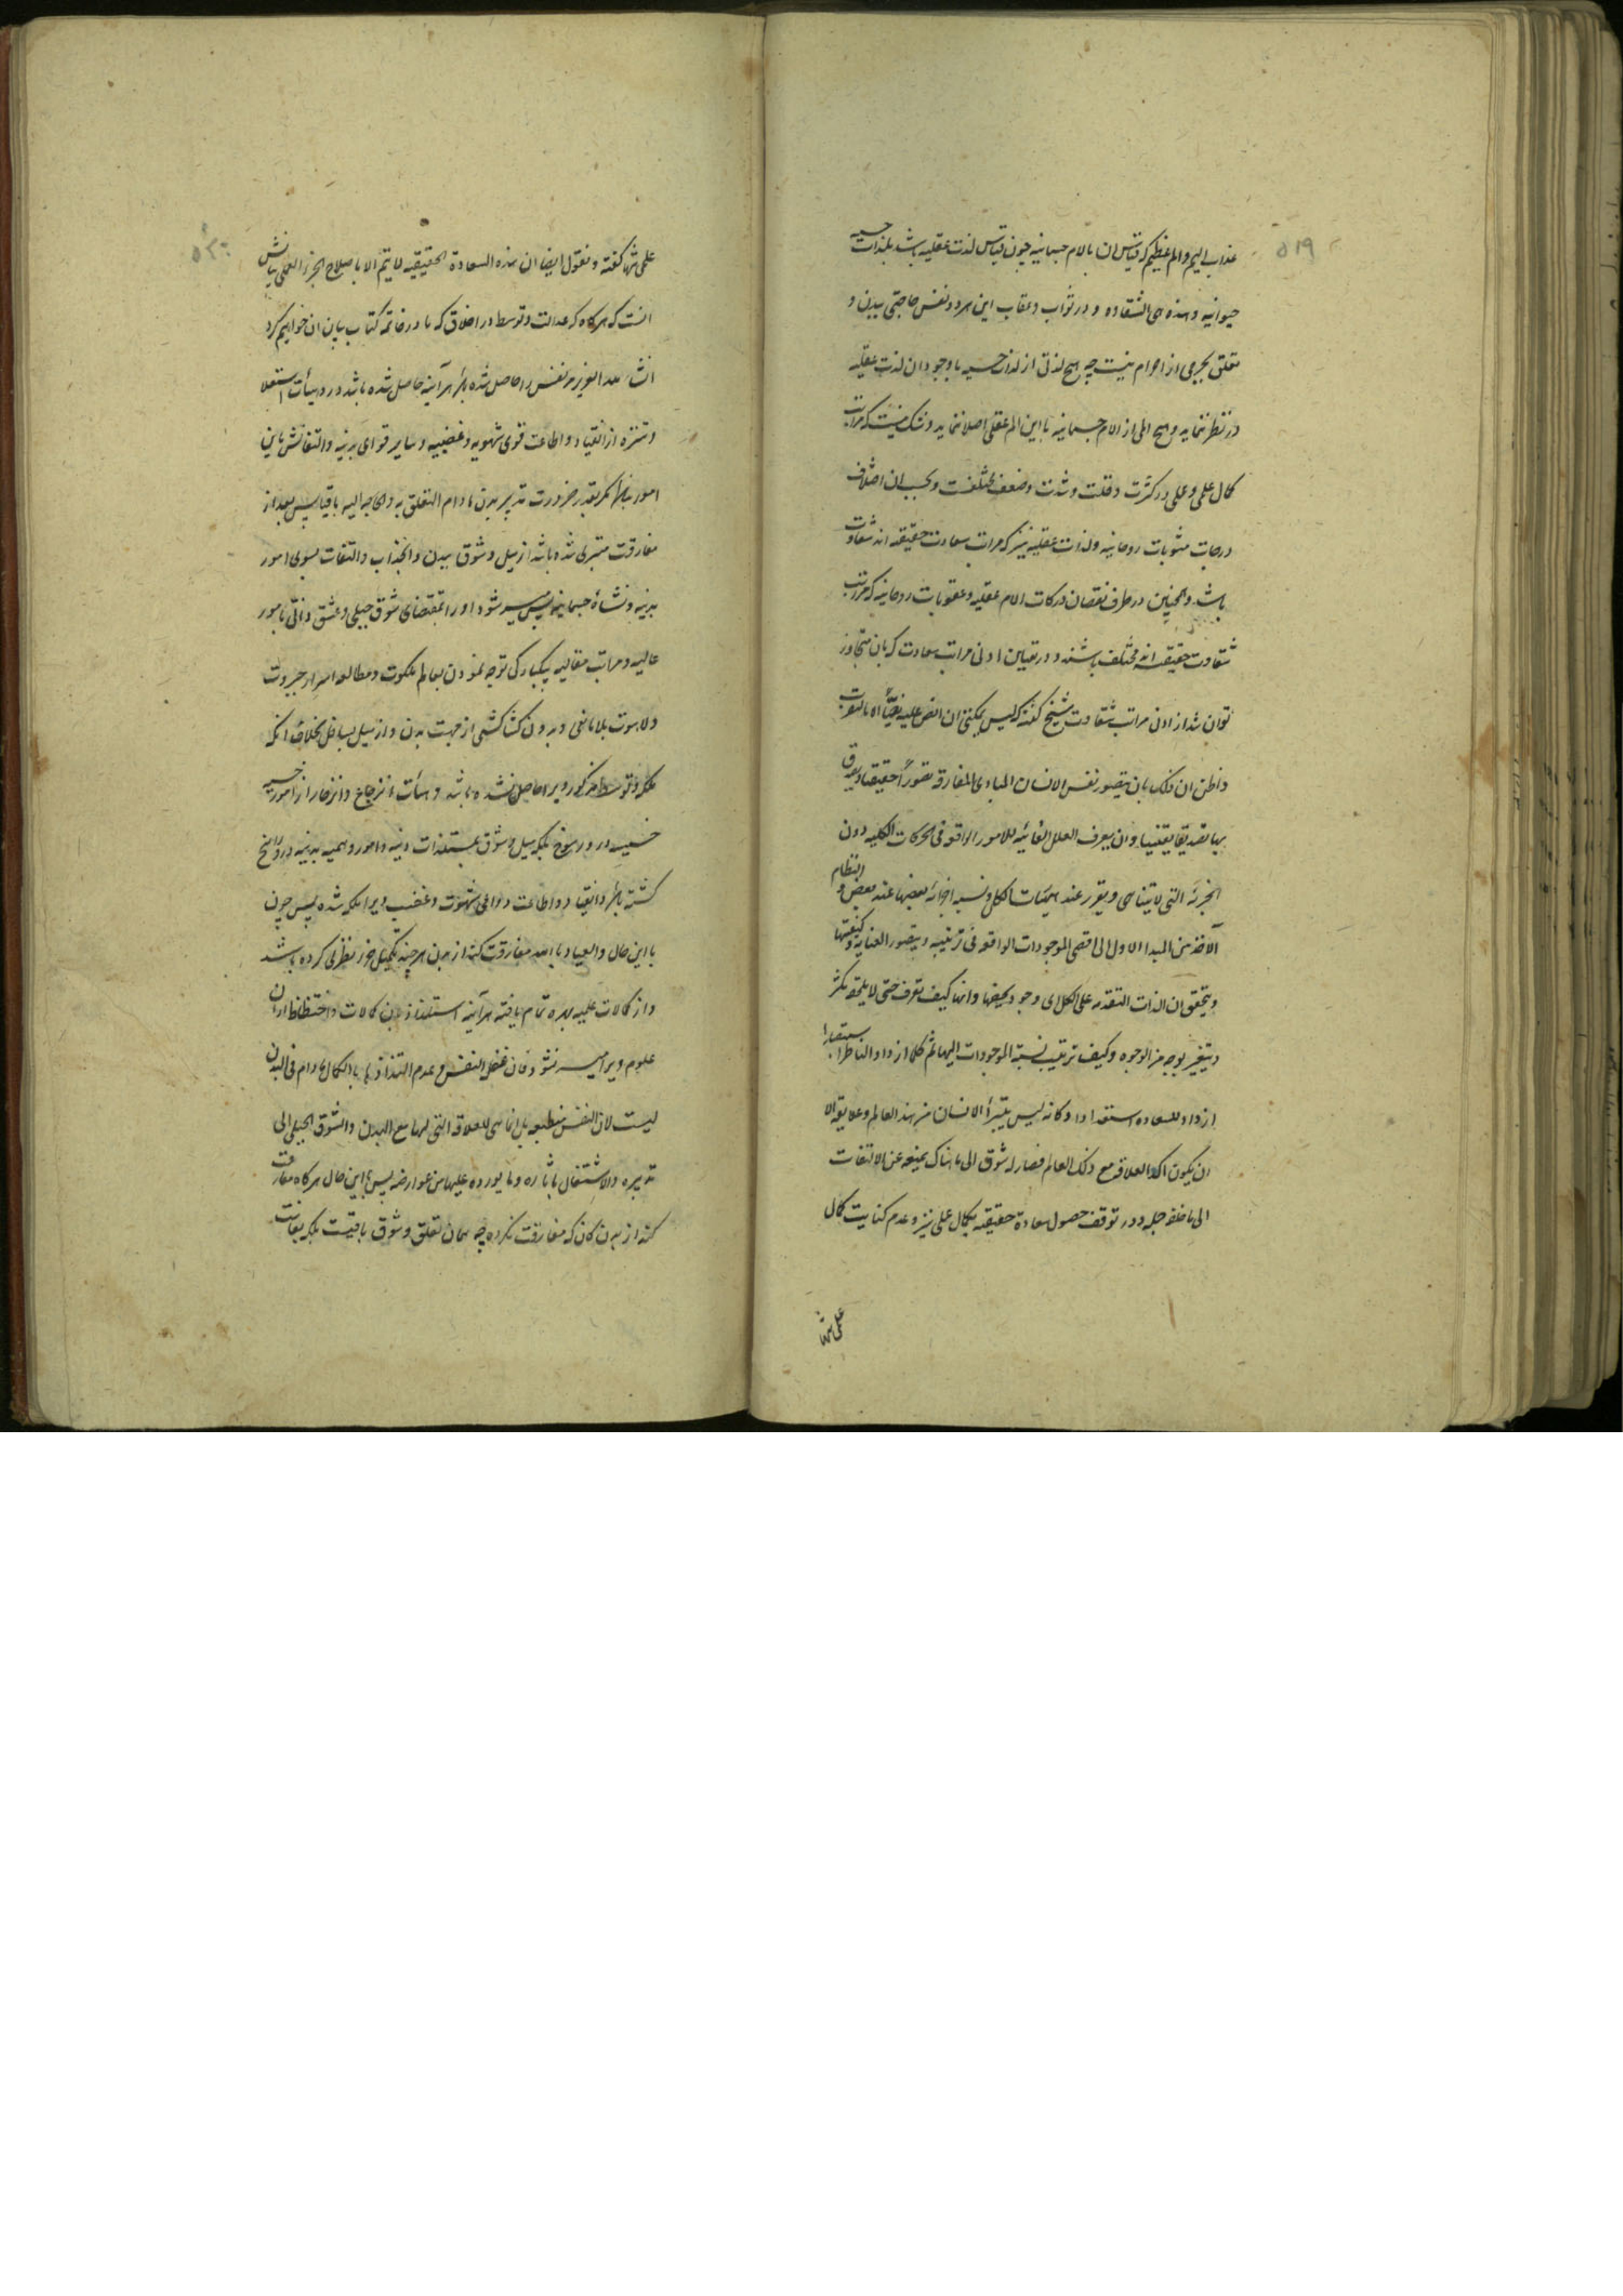 ۵۱۹
عذاب الیم و الم عظیم که قیاس آن بالام جسمانیه چون قیاس لذت عقلیه باشد بلذات حسیه
حیوانیه و هذه هی الشقاوه و در ثواب و عقاب این هر دو نفس حاجتی ببدن و
تعلق بجرمی از اجرام نیست چه هیچ لذتی از لذات حسیه با وجود ان لذت عقلیه
در نظر نماید و هیچ المی از الام جسمانیه با این الم عقلی اصلا ننماید و شک نیست که مراتب
کمال علمی و عملی در کثرت و قلت و شدت و ضعف مختلفست و بحسب ان اختلاف
درجات مثوبات روحانیه و لذات عقلیه نیز که مراتب سعادت حقیقیه اند متفاوت
باشد و همچنین در طرف نقصان درکات الام عقلیه و عقوبات روحانیه که مراتب
شقاوت حقیقیه اند مختلف باشند و در تعیین ادنی مراتب سعادت که بان متجاوز
توان شد از ادنی مراتب شقاوت شیخ گفته که لیس یمکننی ان انص علیه نصاً الا بالتقریب
و اظن ان ذلک بان یتصور نفس الانسان المبادی المفارقه تصوراً حقیقیا و یصدق
بها تصدیقا یقینیا و ان یعرف العلل الغائیه للامور الواقعه فی الحرکات الکلیه دون
الجزئیه التی لا یتناهی و یتقرر عنده هیئات الکل و نسبه اجزائه بعضها عند بعض و النظام
الاخذ من المبدا الاول الی اقصی الموجودات الواقعه فی ترتیبه و یتصور العنایه و کیفیتها
و یتحقق ان الذات المتقدمه علی الکل ای وجود یخصها و انها کیف تعرف حتی لا یلحقه تکثر
و یتغیر بوجه من الوجوه و کیف ترتیب نسبة الموجودات الیها ثم کلما ازداد الناظر استبصارا
ازداد للسعاده استعدادا و کانه لیس یتبرأ الانسان من هذا العالم و علایقه الا
ان یکون اکد العلاقه مع ذلک العالم فصار له شوق الی ما هناک یمنعه عن الالتفات
الی ما خلفه جمله و در توقف حصول سعادة حقیقیه بکمال عملی نیز و عدم کفایت کمال
علمی تنها
۵۲۰
علمی تنها گفته و نقول ایضا ان هذه السعادة الحقیقیه لا یتم الا باصلاح الجزء العملی بیانش
انست که هرگاه که عدالت و توسط در اخلاق که ما در خاتمه کتاب بیان ان خواهیم کرد
انشاء الله العزیز مر نفس را حاصل شده باشد هر آینه حاصل شده باشد در و هیأت استعلا
و تنزه از انقیاد و اطاعت قوی شهویه و غضبیه و سایر قوای بدنیه و التفاتش باین
امور نباشد مگر بقدر ضرورت تدبیر بدن ما دام التعلق به و الحاجه الیه باقیا پس بعد از
مفارقت متبری شده باشد از میل و شوق ببدن و انجذاب و التفات بسوی امور
بدنیه و نشأة جسمانیه پس میسر شود او را بمقتضای شوق جبلی و عشق ذاتی بامور
عالیه و مراتب متعالیه یکبارگی توجه نمودن بعالم ملکوت و مطالعه اسرار جبروت
و لاهوت بلا مانعی و بدون کشاکشی از جهت بدن و از میل بسافل بخلاف انکه
ملکه توسط مذکور ویرا حاصل نشده باشد و هیأت انزجاع و انزجار از امور حسیه
خسیسه در و رسوخ بلکه میل و شوق بمستلذات دنیه و امور وهمیه بدنیه در و راسخ
گشته باشد و انقیاد و اطاعت دواعی شهوت و غضب ویرا ملکه شده پس چون
با این حال و العیاذ بالله مفارقت کند از بدن هر چند تکمیل جزء نظری کرده باشد
و از کمالات علمیه بهره تمام یافته هر آینه استلذاذ بدین کمالات و احتظاظ از ان
علوم ویرا میسر نشود فان غفل النفس و عدم التذاذها بالکمال ما دام فی البدن
لیست لان النفس منطبعه بل انما هی للعلاقه التی لها مع البدن و الشوق الجبلی الی
تدبیره و الاشتغال باثاره و ما یورده علیها من عوارضه پس با این حال هرگاه مفارقت
کند از بدن کان که مفارقت نکرده چه همان تعلق و شوق باقیست بلکه بغایت